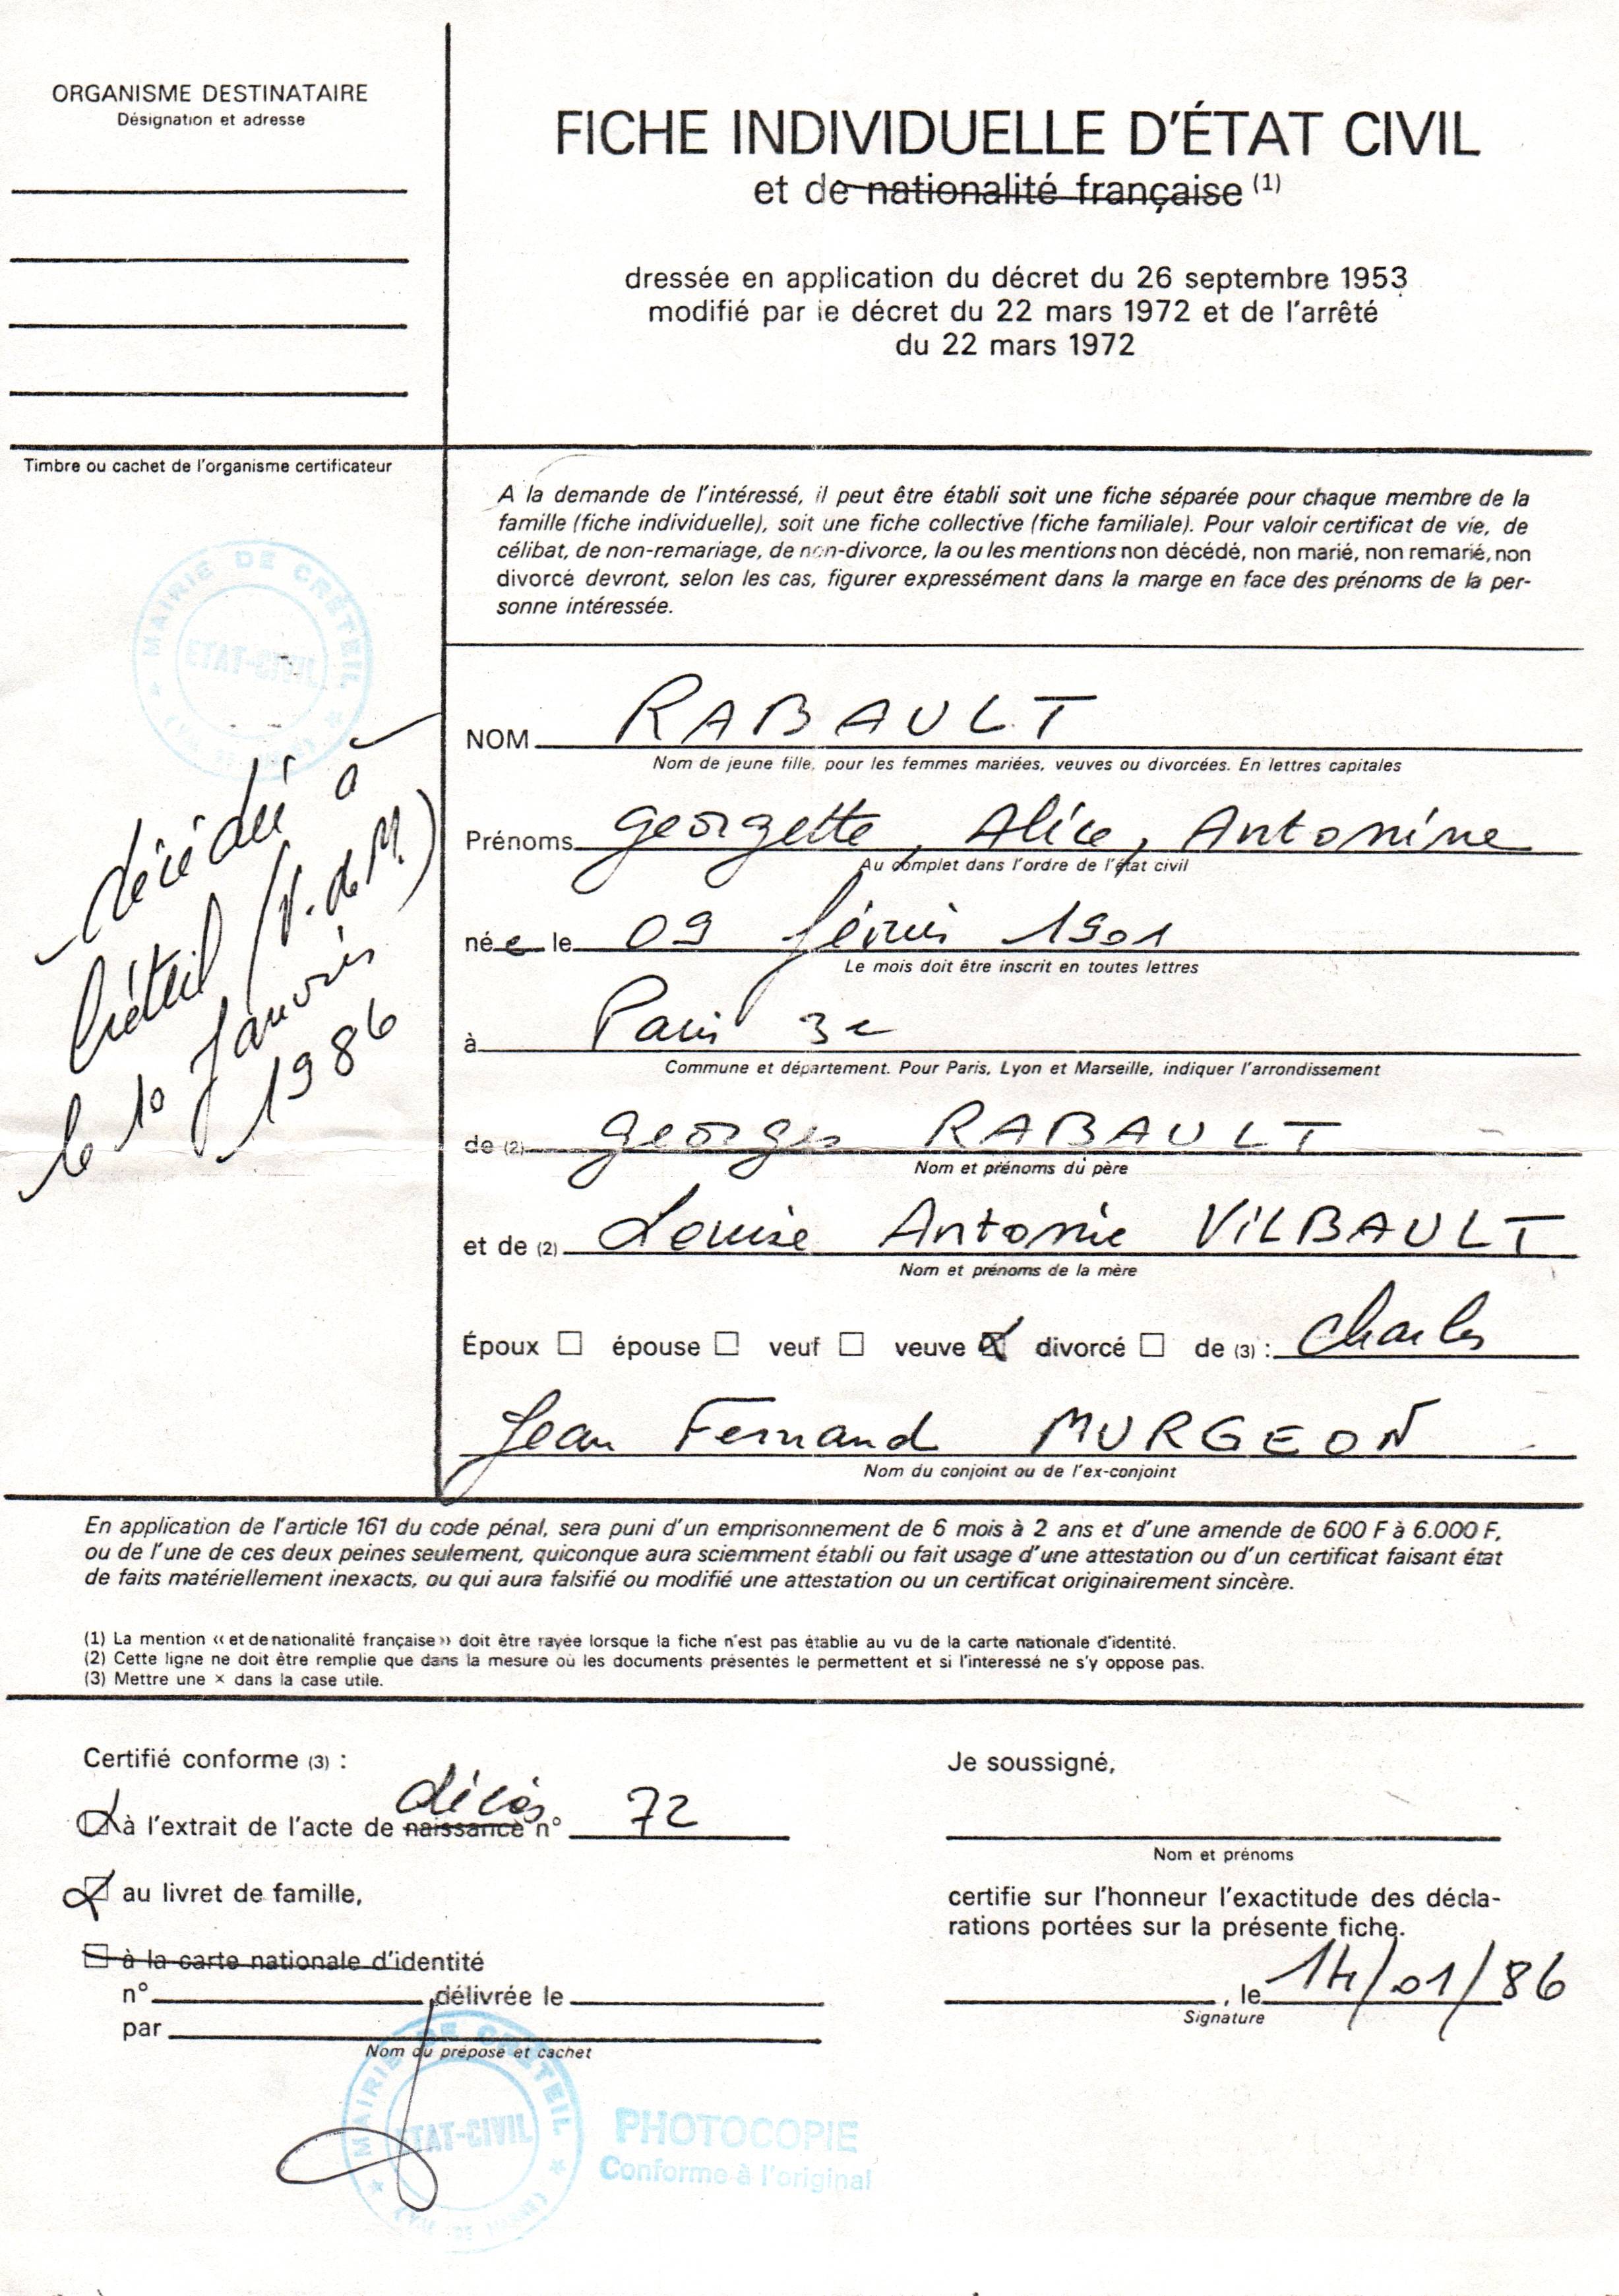 ORGANISME DESTINATAIRE
Désignation et adresse
FICHE INDIVIDUELLE D'ÉTAT CIVIL
et de nationalité française (1)
dressée en application du décret du 26 septembre 1953
modifié par le décret du 22 mars 1972 et de l'arrêté
du 22 mars 1972
Timbre ou cachet de l'organisme certificateur
MAIRIE DE CRÉTEIL
ETAT-CIVIL
(VAL DE MARNE)
décédée à
Créteil (V. de M.)
le 10 Janvier
1986
A la demande de l'intéressé, il peut être établi soit une fiche séparée pour chaque membre de la
famille (fiche individuelle), soit une fiche collective (fiche familiale). Pour valoir certificat de vie, de
célibat, de non-remariage, de non-divorce, la ou les mentions non décédé, non marié, non remarié, non
divorcé devront, selon les cas, figurer expressément dans la marge en face des prénoms de la per-
sonne intéressée.
NOM RABAULT
Nom de jeune fille, pour les femmes mariées, veuves ou divorcées. En lettres capitales
Prénoms Georgette, Alice, Antonine
Au complet dans l'ordre de l'état civil
née le 09 février 1901
Le mois doit être inscrit en toutes lettres
à Paris 3e
Commune et département. Pour Paris, Lyon et Marseille, indiquer l'arrondissement
de (2) Georges RABAULT
Nom et prénoms du père
et de (2) Louise Antonie VILBAULT
Nom et prénoms de la mère
Époux épouse veuf veuve divorcé de (3) : Charles
Jean Fernand MURGEON
Nom du conjoint ou de l'ex-conjoint
En application de l'article 161 du code pénal, sera puni d'un emprisonnement de 6 mois à 2 ans et d'une amende de 600 F à 6.000 F,
ou de l'une de ces deux peines seulement, quiconque aura sciemment établi ou fait usage d'une attestation ou d'un certificat faisant état
de faits matériellement inexacts, ou qui aura falsifié ou modifié une attestation ou un certificat originairement sincère.
(1) La mention « et de nationalité française » doit être rayée lorsque la fiche n'est pas établie au vu de la carte nationale d'identité.
(2) Cette ligne ne doit être remplie que dans la mesure où les documents présentés le permettent et si l'interessé ne s'y oppose pas.
(3) Mettre une × dans la case utile.
Certifié conforme (3) :
décès
à l'extrait de l'acte de naissance n° 72
au livret de famille,
à la carte nationale d'identité
n° délivrée le
par
Nom du préposé et cachet
MAIRIE DE CRÉTEIL
ETAT-CIVIL
(VAL DE MARNE)
PHOTOCOPIE
Conforme à l'original
Je soussigné,
Nom et prénoms
certifie sur l'honneur l'exactitude des décla-
rations portées sur la présente fiche.
, le 14/01/86
Signature